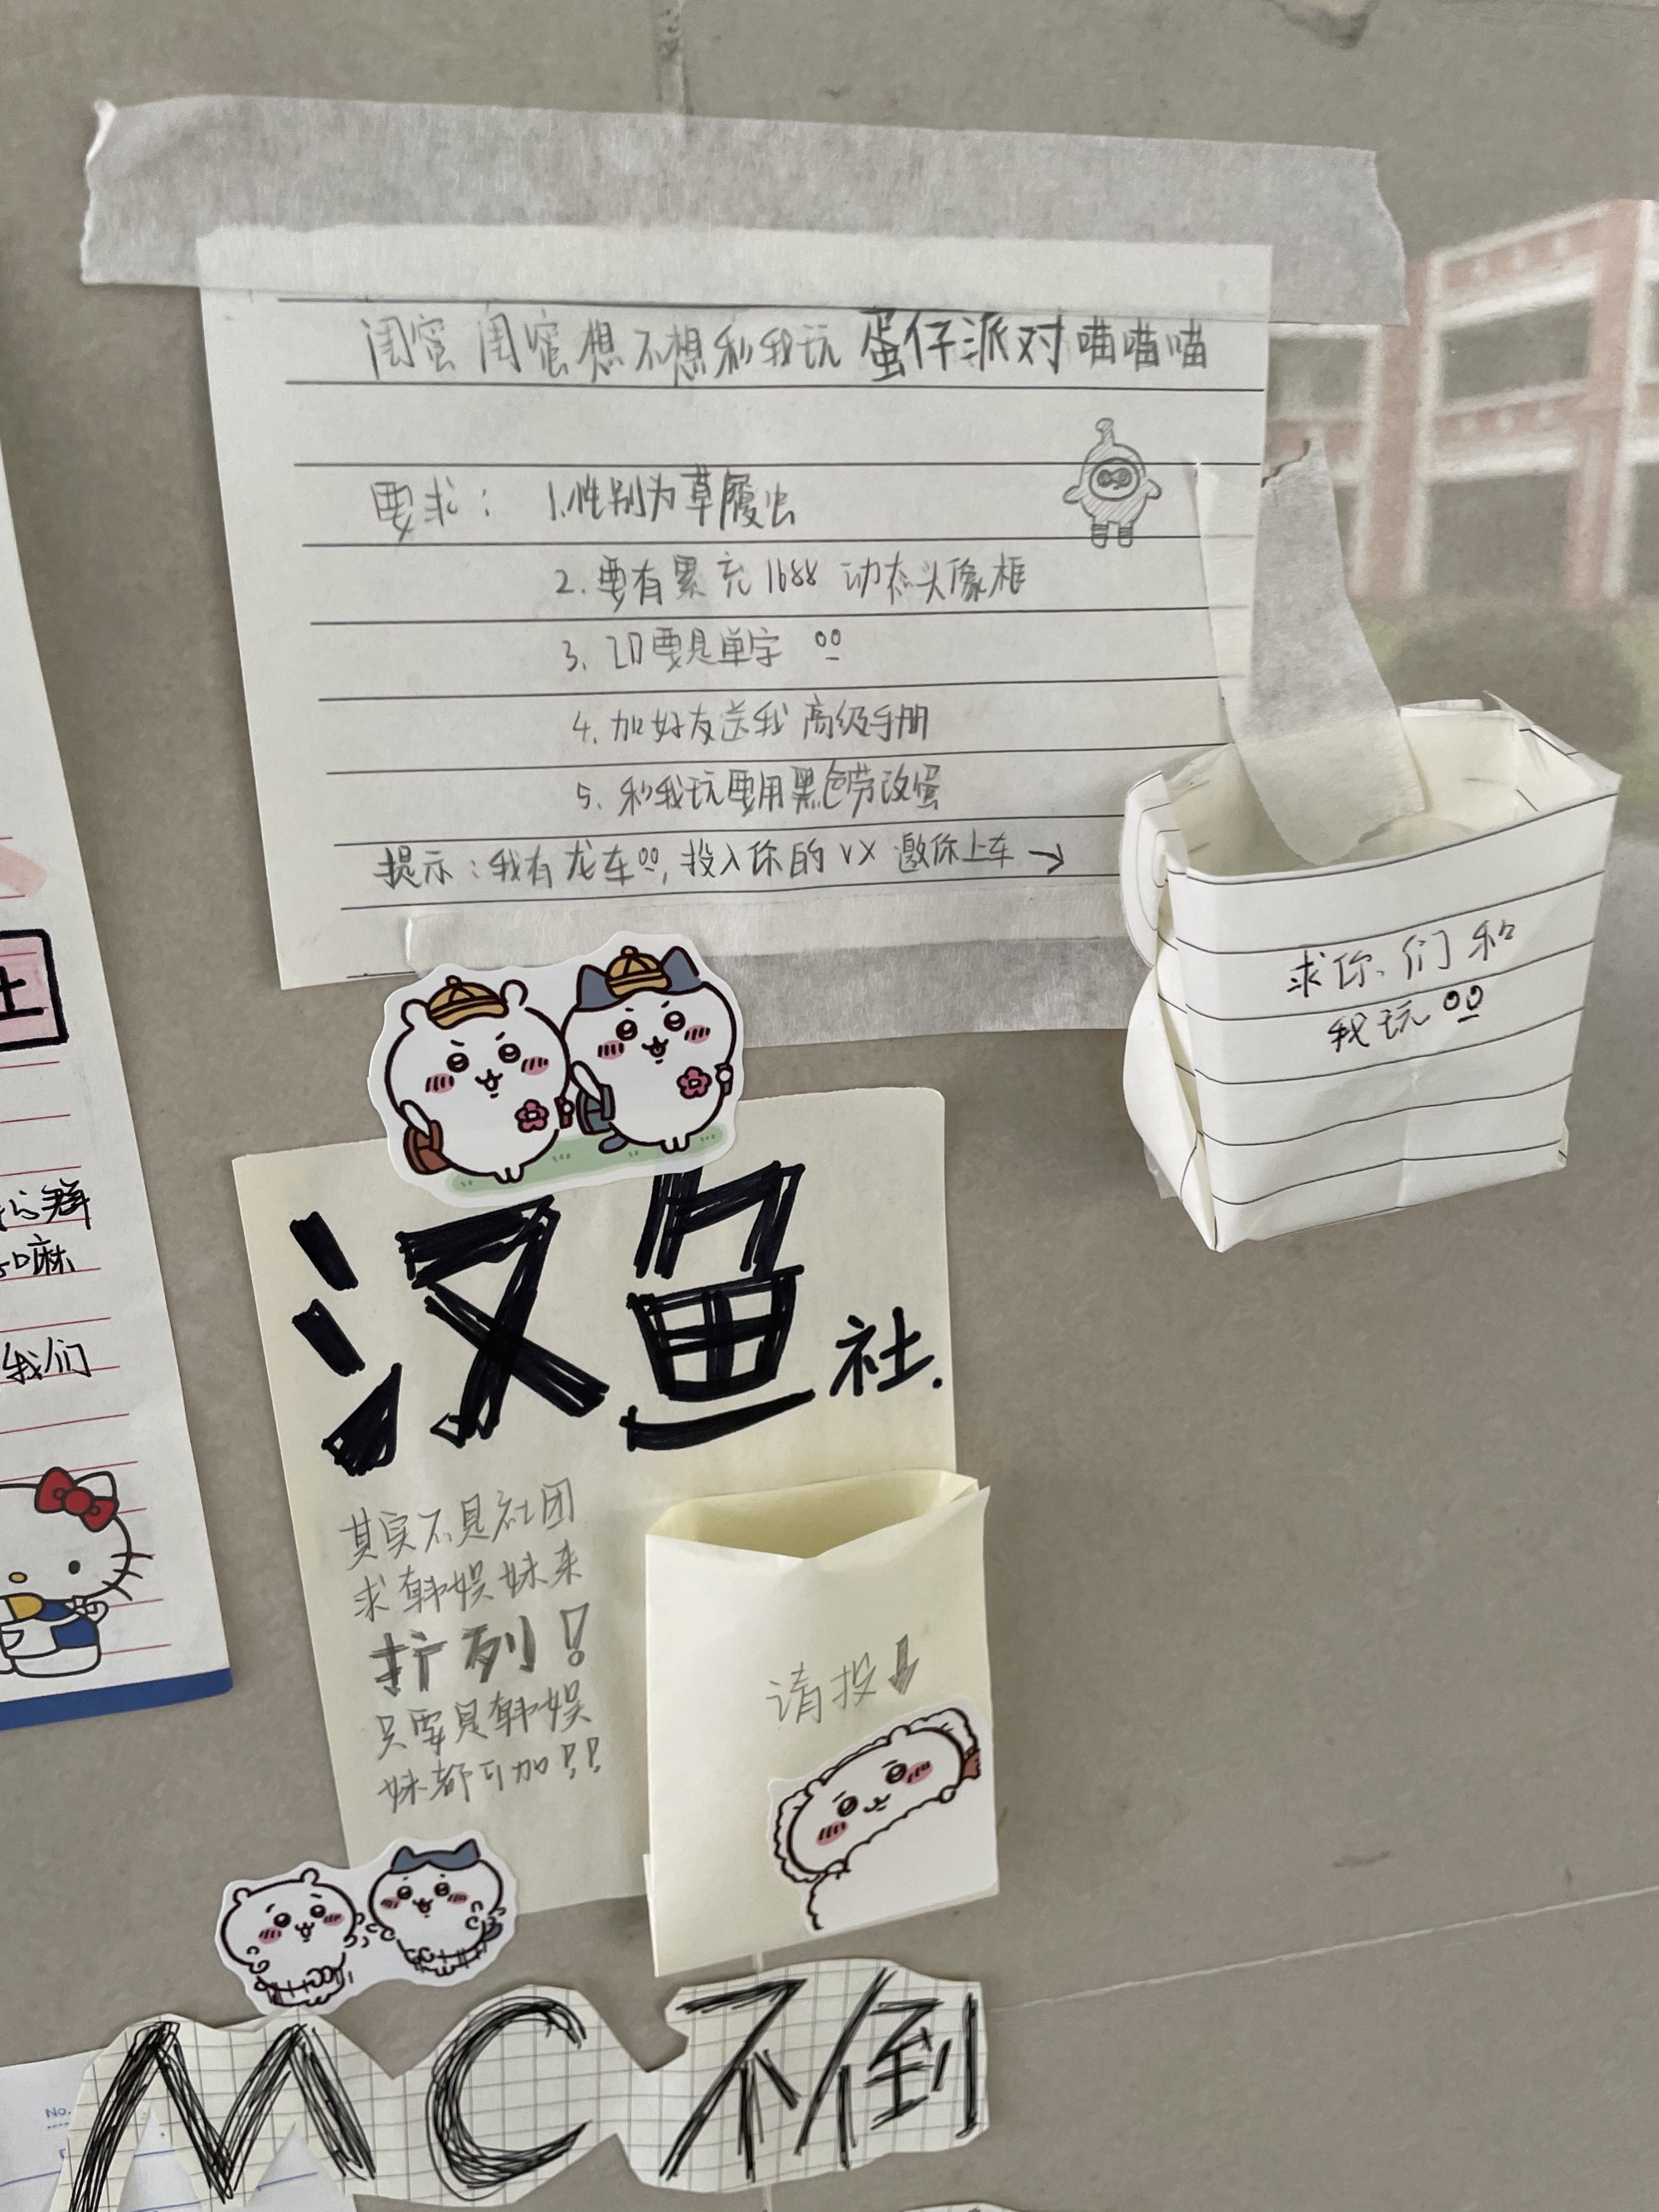 闺蜜闺蜜想不想和我玩蛋仔派对喵喵喵
要求：1.性别为草履虫
2.要有累充1688动态头像框
3.ID要是单字
4.加好友送我高级手册
5.和我玩要用黑色劳改蛋
提示：我有龙车，投入你的VX邀你上车→
求你们和
我玩
土
心群
麻
我们
汉鱼社.
其实不是社团
求韩娱妹来
扩列！
只要是韩娱
妹都可加！！
请投
MC不倒
No.